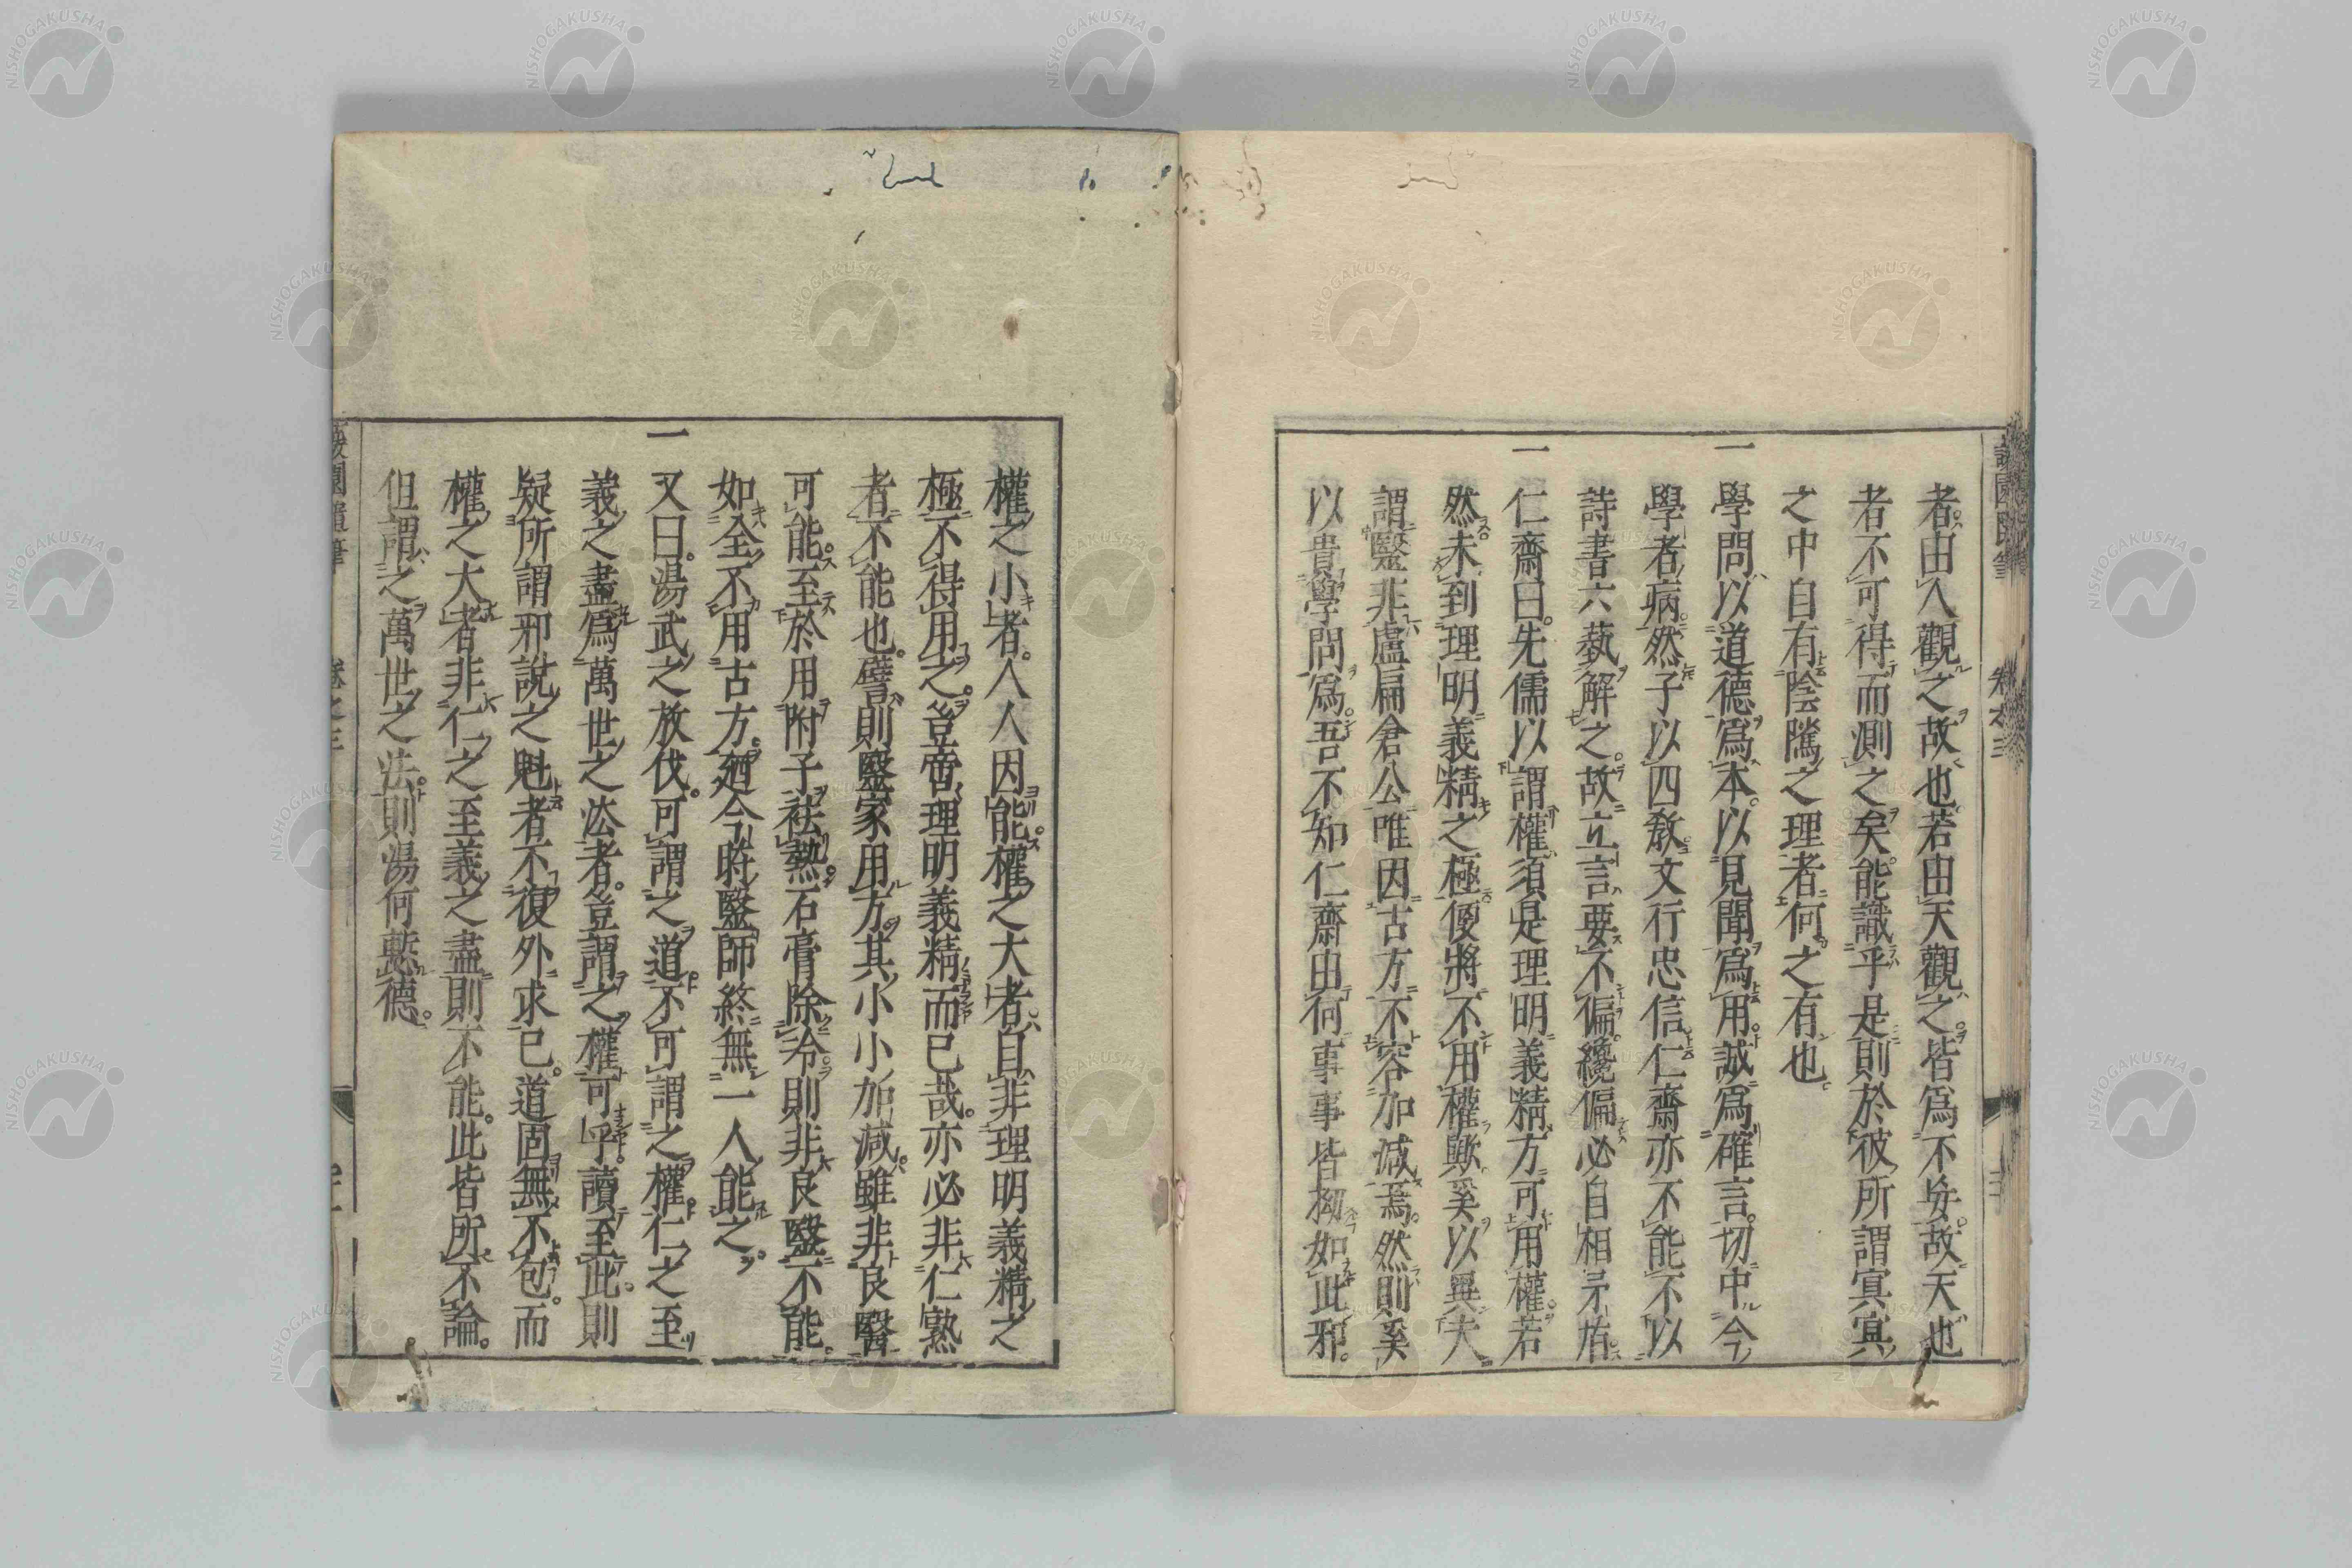 者由人觀之故也若由天觀之。皆爲不妄。故天也
者不可得而測之矣。能識乎是則於彼所謂冥冥
之中自有陰隲之理者何之有也。
一
學問以道德爲本。以見聞爲用。誠爲確言。切中今
學者病。然子以四敎文行忠信仁齋亦不能不以
詩書六藝解之。故立言要不偏。纔偏必自相矛楯。
一
仁齋曰。先儒以謂權須是理明義精方可用權。若
然未到理明義精之極便將不用權歟奚以異夫
謂醫非盧扁倉公唯因古方不容加減焉。然則奚
以貴學問爲。吾不知仁齋由何事事皆拗如此邪。
權之小者。人人因能權之大者。自非理明義精之
極不得用之。豈啻理明義精而已哉。亦必非仁熟
者不能也。譬則醫家用方。其小小加減。雖非良醫
可能。至於用附子袪熱。石膏除冷。則非良醫不能。
如全不用古方。廼今時醫師終無一人能之。
一
又曰。湯武之放伐。可謂之道。不可謂之權。仁之至
義之盡爲萬世之法者。豈謂之權可乎。讀至此。則
疑所謂邪說之魁者不復外求已。道固無不包。而
權之大者非仁之至義之盡則不能。此皆所不論。
但謂之萬世之法。則湯何慙德。
卷之三
NISHOGAKUSHA